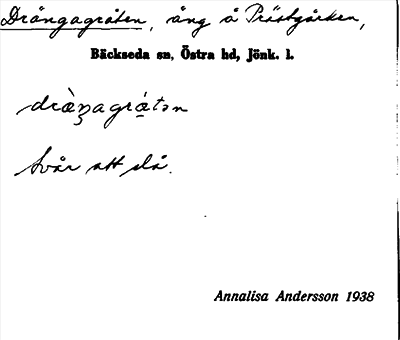 Drängagråten, äng å Prästgården,
Bäckseda sn, Östra hd, Jönk. l.
dràŋagrátən
Svår att slå.
Annalisa Andersson 1938